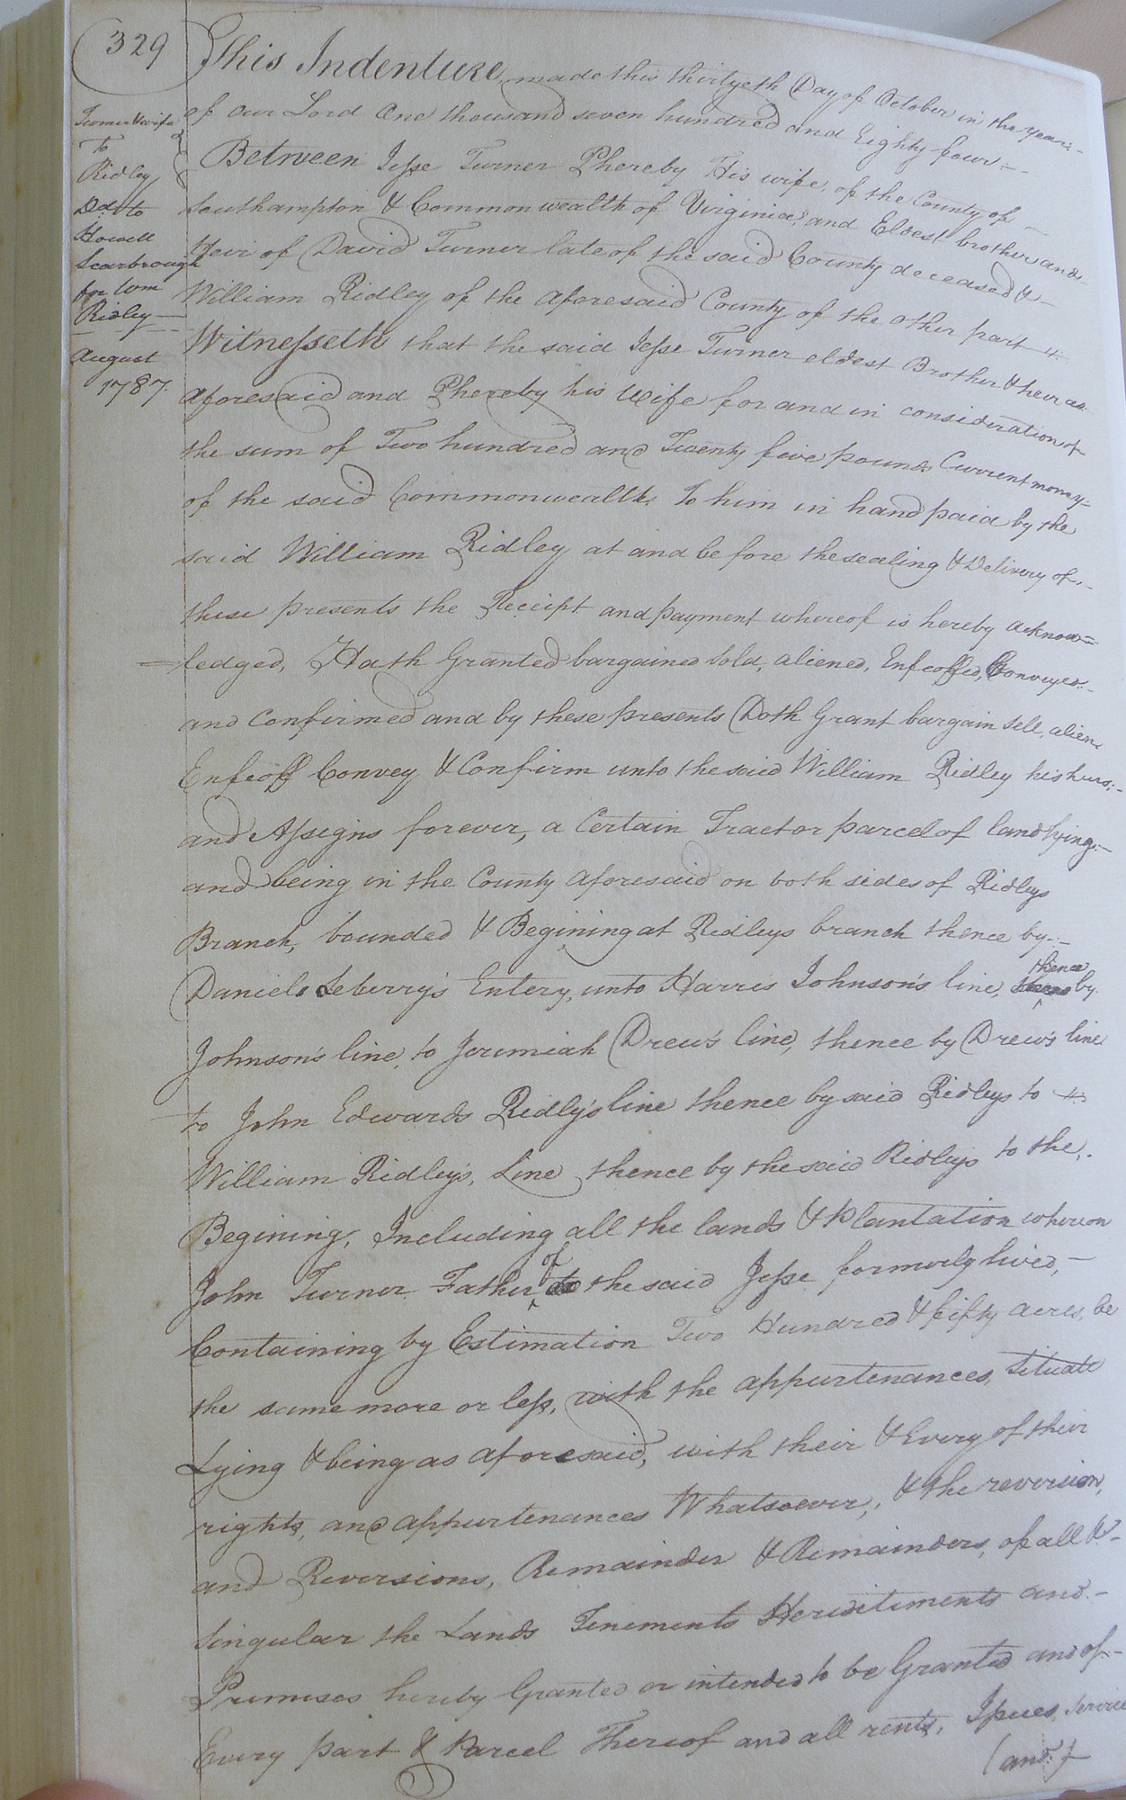 329
Turner & wife
to
Ridley
Dd. to
Howell
Scarbrough
for Wm
Ridley
August
1787.
This Indenture made this thirtyeth Day of October in the year
of our Lord One thousand seven hundred and Eighty four
Between Jesse Turner Phereby His wife, of the County of
Southampton & Commonwealth of Virginia, and Eldest brother and
Heir of David Turner late of the said County deceased &
William Ridley of the aforesaid County of the Other part
Witnesseth that the said Jesse Turner eldest Brother & heir as
aforesaid and Phereby his Wife for and in consideration of
the sum of Two hundred and Twenty five pounds Current money
of the said Commonwealth. To him in hand paid by the
said William Ridley at and before the sealing & Delivery of
these presents the Receipt and payment whereof is hereby acknow=
=ledged, Hath Granted bargained sold, aliened, Enfeoffed, Conveyed
and Confirmed and by these presents Doth Grant bargain sell, alien
Enfeoff Convey & Confirm unto the said William Ridley his heirs
and Assigns forever, a Certain Tract or parcel of land lying
and being in the County aforesaid on both sides of Ridleys
Branch, bounded & Begining at Ridleys branch thence by
Daniels Seberry's Entery, unto Harris Johnson's line, thence by
Johnson's line, to Jeremiah Drew's line, thence by Drew's line
to John Edwards Ridly's line thence by said Ridleys to
William Ridley's, Line thence by the said Ridleys to the
Begining, Including all the lands & Plantation whereon
John Turner Father of the said Jesse formerly lived,
Containing by Estimation Two Hundred & fifty acres, be
the same more or less, with the appurtenances, Situate
Lying & being as aforesaid, with their & Every of their
rights, and appurtenances Whatsoever, & the reversion,
and Reversions, Remainder & Remainders, of all &
Singular the Lands Tenements Hereditiments and
Premises hereby Granted or intended to be Granted and of
Every part & Parcel Thereof and all rents, Issues, Service
(and)